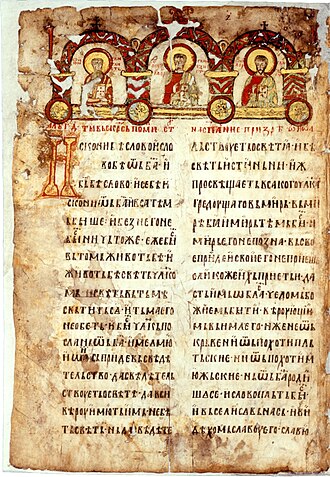 искони бѣ слово и сло
во бѣ ѿ ба и
бь бѣ слово се бѣ и
скони ѿ ба и всѣ тѣмь
бише и без него не б
ы ничтоже еже бы
в томь животь бѣ и
животь бѣ свѣть чловко
мь и свѣть вь тьмѣ
свьтить се и тьма его
не обеть и бы члкь по
слань ѿ ба име ему
иѡ сь приде вь свѣдѣ
тельство да свѣдѣтель
ствуеть о свѣтѣ да вси
вѣру имуть имь не бѣ
ть свѣть нь да свѣдѣте
льствуеть о свѣтѣ бѣ
свѣть истиньны иже
просвѣщаеть всакого члка
гредуща вь мирь вь ми
рѣ бѣ и мирь тѣмь бы и
мирь его не позна вь сво
ѣ приде и свои его не приеше
елико же ихь приеть и да
сть имь ѡбласть чедомь бж
иемь быти вѣрующи
мь вь име его иже не ѿ
крьве ни ѿ похоти пль
тьске ни ѿ похоти
мужьске нь ѿ ба роди
ше се и слово пльть бы
и вьсели се вь ны и ви
дѣхомь славу его славу